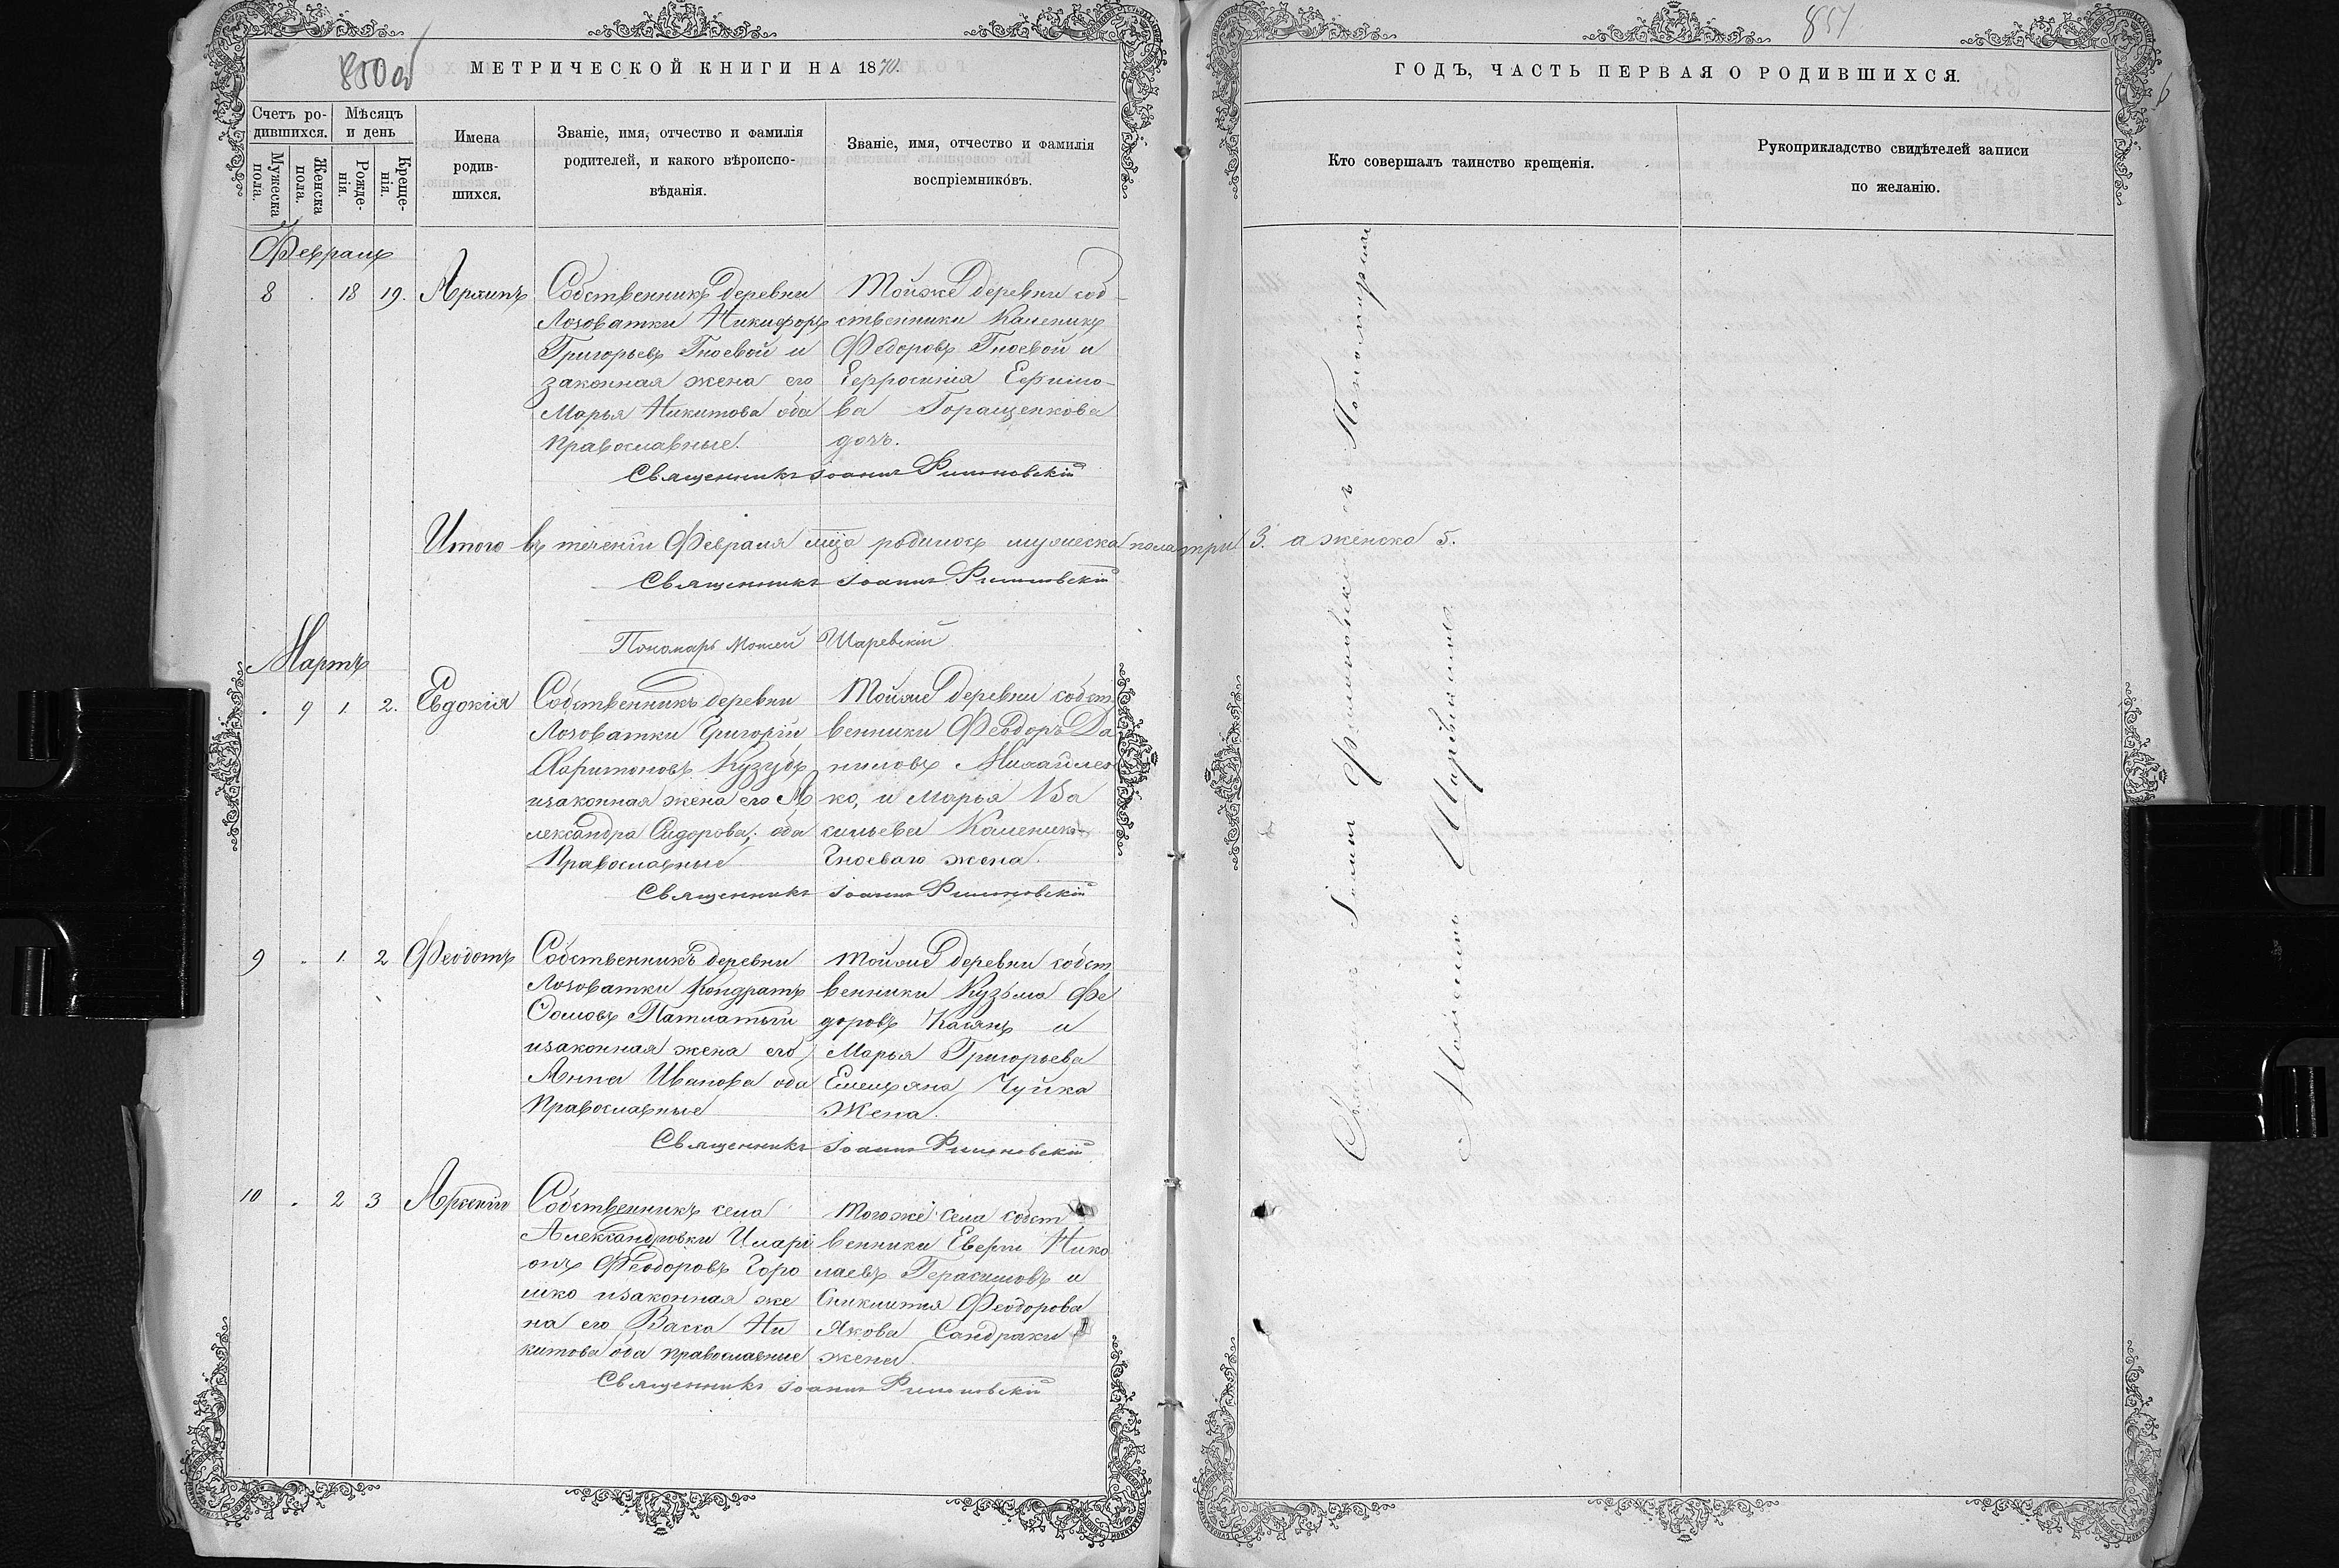 850 об
МЕТРИЧЕСКОЙ КНИГИ НА 1870.
Счетъ ро-
дившихся.
Мѣсяцъ
и день
Мужеска
пола.
Женска
пола.
Рожде-
нія.
Креще-
нія.
Имена
родив-
шихся.
Званіе, имя, отчество и фамилія
родителей, и какого вѣроиспо-
вѣданія.
Званіе, имя, отчество и фамилія
воспріемниковъ.
Февраль
8 . 18 19. Архипъ
Собственникъ деревни
Лозоватки Никифоръ
Григорьевъ Гноевой и
законная жена его
Марья Никитова оба
Православные.
Тойже деревни соб-
ственники Каленикъ
Федоровъ Гноевой и
Ефросинія Ефимо-
ва Горащенкова
дочь.
Священникъ Іоаннъ
Итого въ теченіи Февраля мца родилось мужеска пола три 3. а женска 5.
Священникъ Іоаннъ
Пономарь Моисей Шаревскій
Мартъ
. 9 1. 2. Евдокія
Собственникъ деревни
Лозоватки Григорій
Харитоновъ Кузубъ
изаконная жена его А
лександра Сидорова, оба
Православные
Тойже деревни собст
венники Феодоръ Да
ниловъ Михайлен
ко, и Марья Ва
сильева Каленика
Гноеваго жена.
Священникъ Іоаннъ
9 . 1. 2 Феодотъ
Собственникъ деревни
Лозоватки Кондратъ
Патлатый
изаконная жена его
Анна Иванова оба
Православные
Тойже деревни собст
венники Кузьма Фе
доровъ Касянъ и
Марья Григорьева
Емельяна Чуйка
Жена.
Священникъ Іоаннъ
10 . 2 3 Арсеній
Собственникъ села
Александровки Иларі
онъ Феодоровъ Горо
шко изаконная же
на его Васса Ни
китова оба православные
Тогоже села собст
венники Нико
лаевъ Герасимовъ и
Феодорова
Якова Сандраки
жена.
Священникъ Іоаннъ
851
6
ГОДЪ, ЧАСТЬ ПЕРВАЯ О РОДИВШИХСЯ.
Кто совершалъ таинство крещенія.
Рукоприкладство свидѣтелей записи
по желанію.
Іоаннъ съ Пономаремъ
Моисеемъ